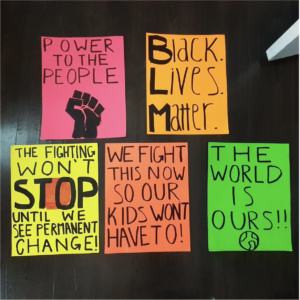 POWER
TO THE
PEOPLE
Black.
Lives.
Matter.
THE FIGHTING
WON'T
STOP
UNTIL WE
SEE PERMANENT
CHANGE!
WE FIGHT
THIS NOW
SO OUR
KIDS WONT
HAVE TO!
THE
WORLD
IS
OURS!!